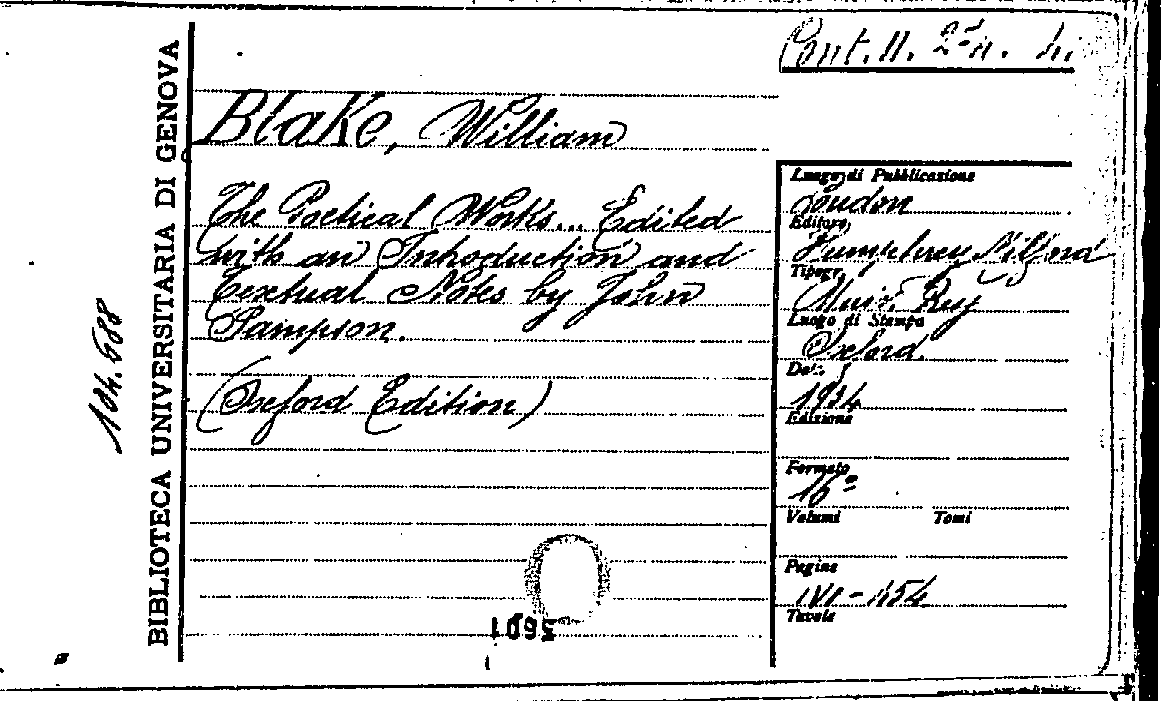 BIBLIOTECA UNIVERSITARIA DI GENOVA
Blake, William
The Poetical Works... Edited
with an Introduction and
Textual Notes by John
Sampson.
(Oxford Edition)
Luogo di Pubblicazione
London
Editore
Humphrey Milford
Tipogr.
Luogo di Stampa
Oxford.
Data
1934
Edizione
Formato
16°
Volumi Tomi
Pagine
Tavole